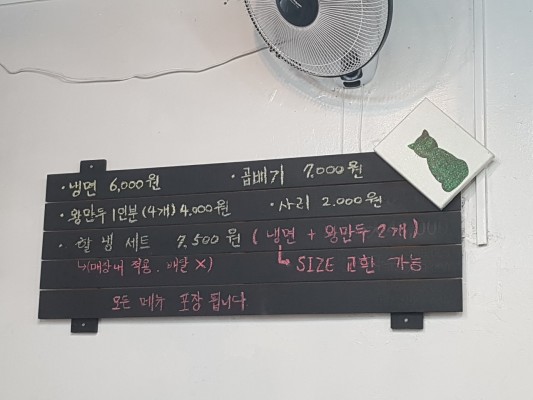 · 냉면 6,000원 · 곱빼기 7,000원
· 왕만두 1인분(4개) 4,000원 · 사리 2.000원
· 할 냉 세트 7,500원 (냉면 + 왕만두 2개)
↳(매장내 적용. 배달 X) ↳ SIZE 교환 가능
모든 메뉴 포장 됩니다